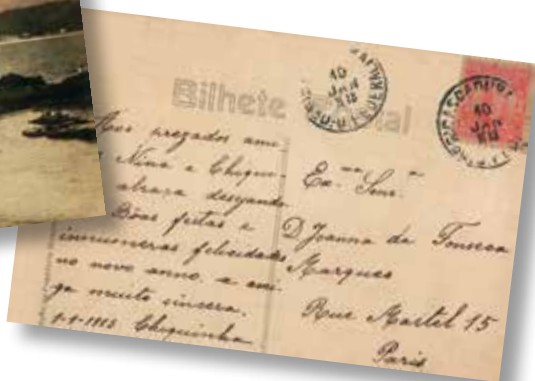 Bilhete Postal
Aos prezados ami
Nina e Chiqui-
abraza desejando
Bôas festas e
innumeras felicidades
no novo anno, a ami
ga muito sincera.
1-1-1913 Chiquinha
Ex.ma Senr.a
D Joanna da Fonseca
Marques
Rue Martel 15
Paris
10
JAN
10
JAN